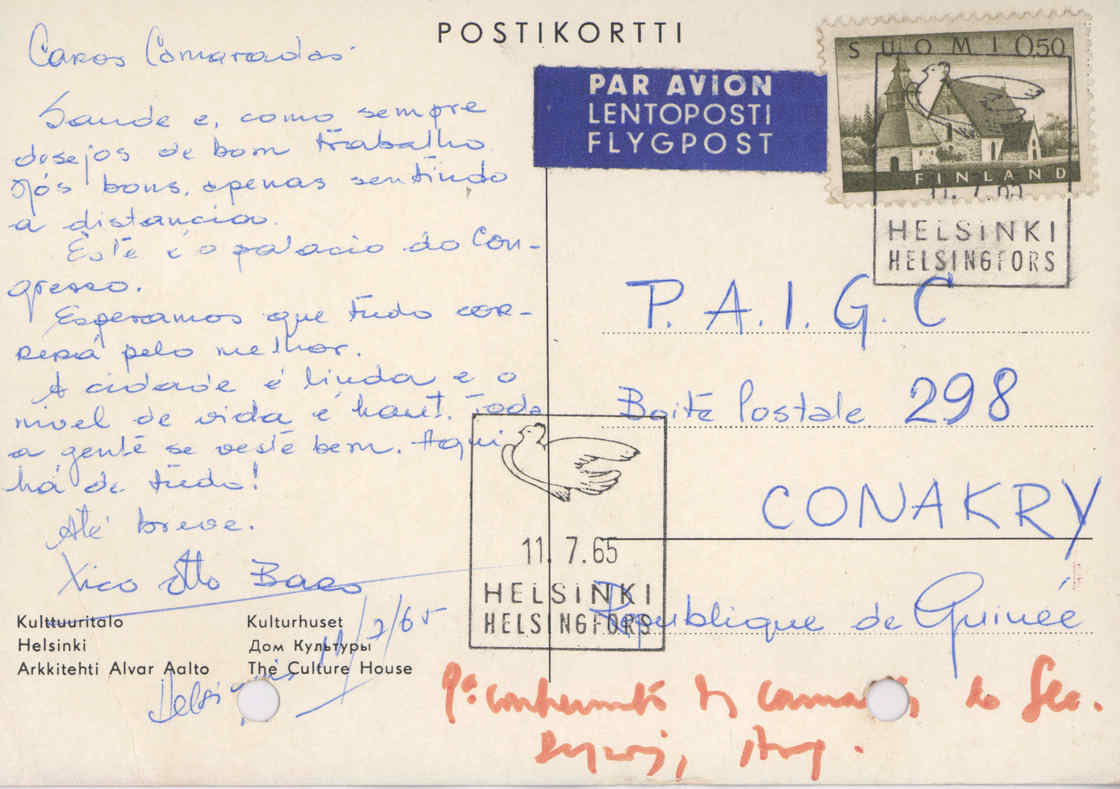 POSTIKORTTI
Caros Camaradas
Saude e, como sempre
desejos de bom trabalho.
Nós bons, apenas sentindo
a distancia.
Este é o palacio do Con-
gresso.
Esperamos que tudo cor-
rerá pelo melhor.
A cidade é linda e o
nivel de vida é haut. Toda
a gente se veste bem. Aqui
há de tudo!
Até breve.
Xico Otto Baro
11/7/65
Kulttuuritalo
Helsinki
Arkkitehti Alvar Aalto
Kulturhuset
Дом Культуры
The Culture House
PAR AVION
LENTOPOSTI
FLYGPOST
SUOMI 0,50
FINLAND
11.7.65
HELSINKI
HELSINGFORS
P.A.I.G.C
Boite Postale 298
CONAKRY
Republique de Guinée
11.7.65
HELSINKI
HELSINGFORS